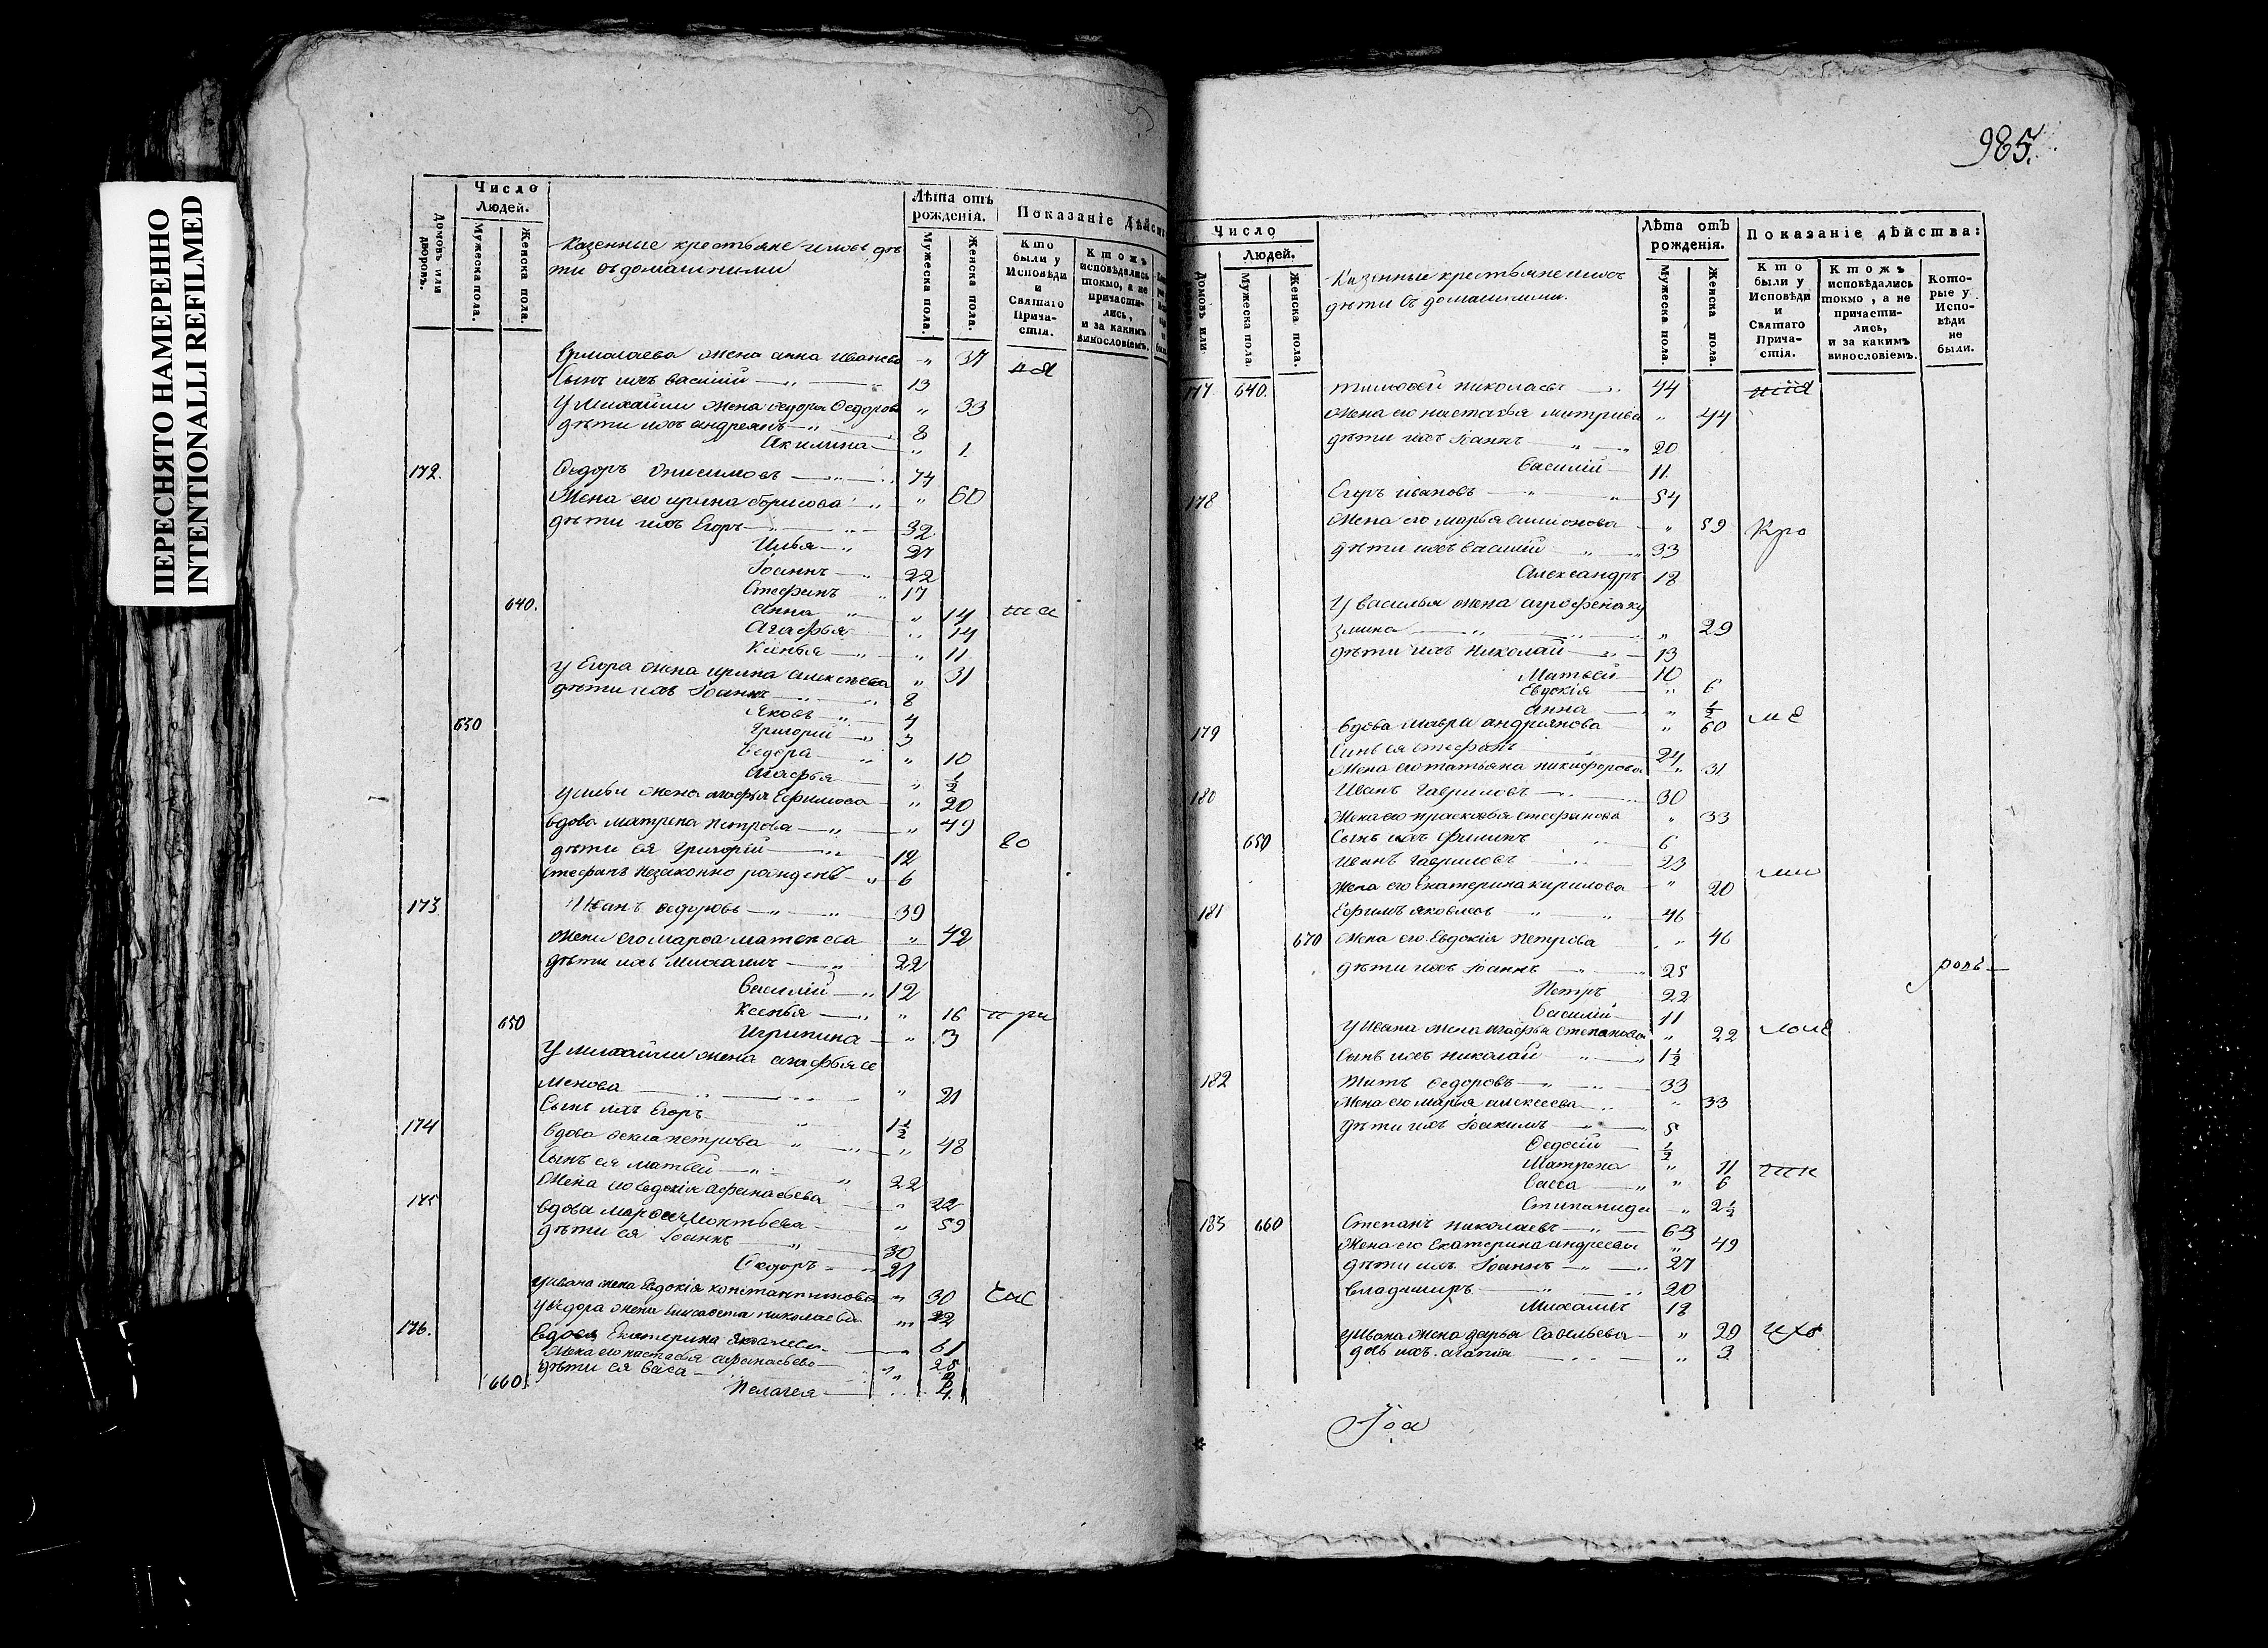 ПЕРЕСНЯТО НАМЕРЕННО
INTENTIONALLI REFILMED
Число
Людей.
Домовъ или дворовъ.
Мужеска пола.
Женска пола.
Казенные крестьяне ихъ дѣ
ти съ домашними
Лѣта отъ
рожденія.
Мужеска пола.
Женска пола.
Показаніе дѣйств
Кто
были у
Исповѣди
и
Святаго
Прича-
стія.
Ктожъ
исповѣдались
токмо, а не
причасти-
лись,
и за какимъ
винословіемъ.
Ермолаева жена анна Иванова " 37
Сынъ ихъ василій 13
У Михайлы жена федора Федорова " 33
дѣти ихъ андреянъ 8
Акилина " 1
172. Федоръ Онисимовъ 74
Жена его ирина борисова " 60
дѣти ихъ Егоръ 32
Илья 27
Іоаннъ 22
Стефанъ 17
640. Анна " 14
Агафья " 14
Ксенья " 11
У Егора жена ирина алексѣева " 31
дѣти ихъ Іоаннъ 8
Яковъ 4
630 Григорій 3
Федора " 10
Агафья " ½
У ильи жена агафья Ефимова " 20
вдова матрена петрова " 49
дѣти ея Григорій 12
стефанъ незаконно рожденъ 6
173 Иванъ федоровъ 39
Жена его марфа матвѣева " 42
дѣти ихъ Михаилъ 22
Василій 12
Ксенья " 16
650 Игрипина " 3
У михайлы жена агафья се
менова " 21
Сынъ ихъ Егоръ 1½
174 вдова фекла петрова " 48
Сынъ ея матвей 22
Жена его евдокія афанасьева " 22
175 вдова марфа Леонтьева " 59
дѣти ея Іоаннъ 30
Федоръ 21
У ивана жена Евдокія константинова " 30
У федора жена Елисавета николаева 22
176. вдова Екатерина 61
Жена его настасья афанасьева 25
дѣти ея васса
660. Пелагея 4
985.
Число
Людей.
Домовъ или
Мужеска пола.
Женска пола.
Казенные крестьяне ихъ
дѣти съ домашними.
Лѣта отъ
рожденія.
Мужеска пола.
Женска пола.
Показаніе дѣйства:
Кто
были у
Исповѣди
и
Святаго
Прича-
стія.
Ктожъ
исповѣдались
токмо, а не
причасти-
лись,
и за какимъ
винословіемъ.
Кото-
рые у
Испо-
вѣди
не
были.
177 640. тимофей николаевъ 44
Жена его настасья митриева " 44
дѣти ихъ Іоаннъ 20
Василій 11
178 Егоръ ивановъ 54
Жена его марья симионова " 59 Кро
дѣти ихъ василій 33
Александръ 18
У василья жена агрофена ку
змина " 29
дѣти ихъ николай 13
Матвей 10
Евдокія " 6
Анна " ½
179 вдова мавра андриянова " 60
Сынъ ея стефанъ 24
Жена его татьяна никифорова " 31
180 Иванъ Гавриловъ 30
Жена его прасковья стефанова " 33
650 Сынъ ихъ филипъ 6
Иванъ Гавриловъ 23
Жена его Екатерина кирилова " 20
181 Ефимъ яковлевъ 46
670 Жена его Евдокія петрова " 46
дѣти ихъ Іоаннъ 25
Петръ 22
Василій 11
У ивана жена агафья степанова " 22
Сынъ ихъ николай 1½
182 Титъ федоровъ 33
Жена его марья алексеева " 33
дѣти ихъ Іоакимъ 5
Федосій ½
Матрена " 11
Васса " 6
Стипанида " 2½
183 660 Степанъ николаевъ 63
Жена его Екатерина андреева " 49
дѣти ихъ Іоаннъ 27
владимиръ 20
Михаилъ 18
У ивана жена дарья Савельева " 20
дочь ихъ агапия " 3
Іоа